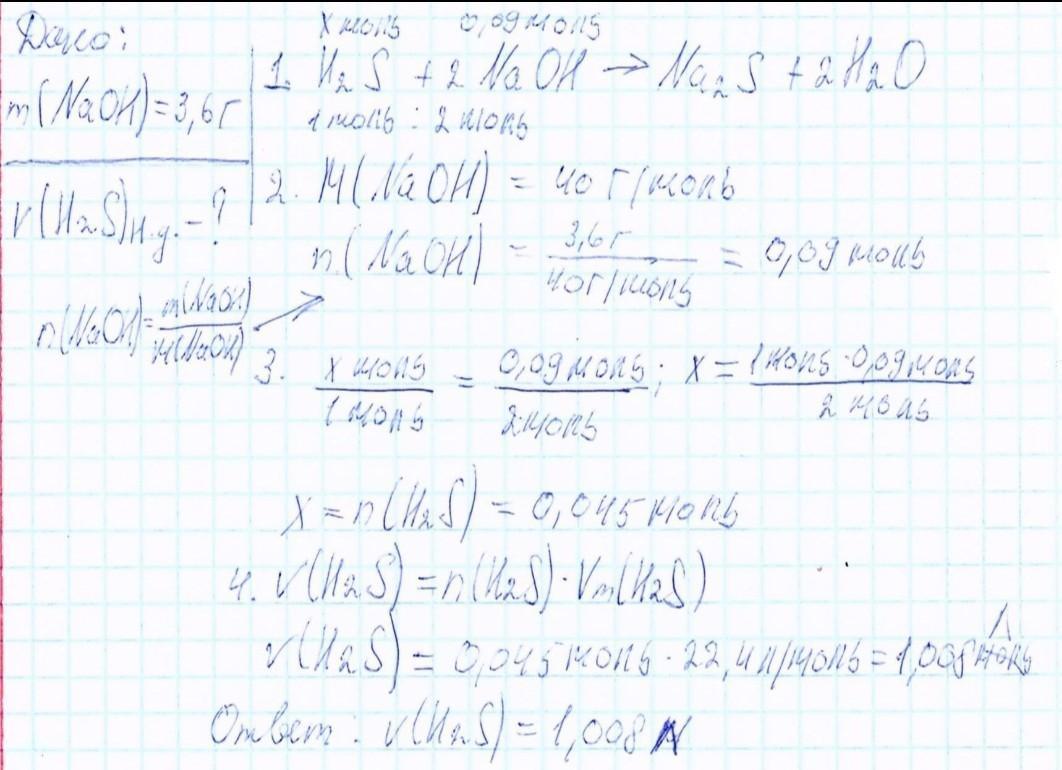 Дано:
m(NaOH)=3,6г
V(H₂S)н.у.-?
n(NaOH)=m(NaOH)/M(NaOH)
x моль 0,09 моль
1. H₂S + 2 NaOH → Na₂S + 2H₂O
1 моль : 2 моль
2. M(NaOH) = 40 г/моль
n(NaOH) = 3,6г/40г/моль = 0,09 моль
3. x моль/1 моль = 0,09 моль/2 моль; x = 1 моль·0,09 моль/2 моль
x = n(H₂S) = 0,045 моль
4. V(H₂S) = n(H₂S)·Vm(H₂S)
V(H₂S) = 0,045 моль · 22,4 л/моль = 1,008 л
Ответ: V(H₂S) = 1,008 л